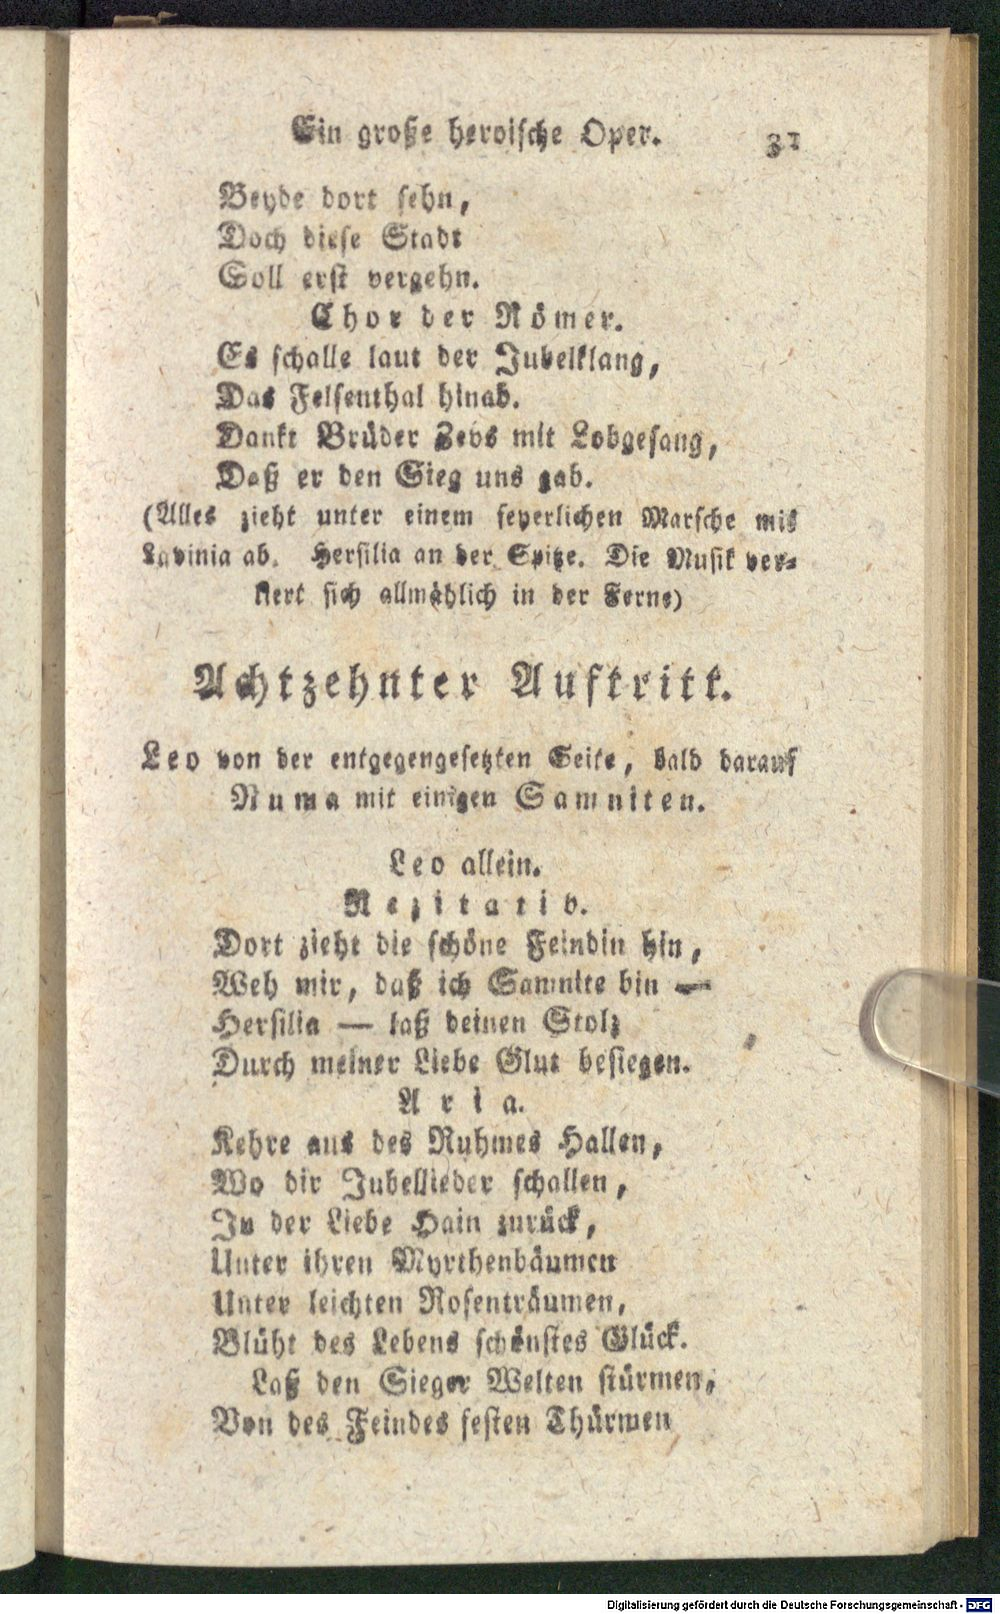 Ein große heroische Oper. 31
Beyde dort sehn,
Doch diese Stadt
Soll erst vergehn.
Chor der Römer.
Es schalle laut der Jubelklang,
Das Felsenthal hinab.
Dankt Brüder Zevs mit Lobgesang,
Daß er den Sieg uns gab.
(Alles zieht unter einem feyerlichen Marsche mit
Lavinia ab. Hersilia an der Spitze. Die Musik ver-
liert sich allmählich in der Ferne)
Achtzehnter Auftritt.
Leo von der entgegengesetzten Seite, bald darauf
Numa mit einigen Samniten.
Leo allein.
Rezitativ.
Dort zieht die schöne Feindin hin,
Weh mir, daß ich Samnite bin —
Hersilia — laß deinen Stolz
Durch meiner Liebe Glut besiegen.
Aria.
Kehre aus des Ruhmes Hallen,
Wo dir Jubellieder schallen,
In der Liebe Hain zurück,
Unter ihren Myrthenbäumen
Unter leichten Rosenträumen,
Blüht des Lebens schönstes Glück.
Laß den Sieger Welten stürmen,
Von des Feindes festen Thürmen
Digitalisierung gefördert durch die Deutsche Forschungsgemeinschaft - DFG